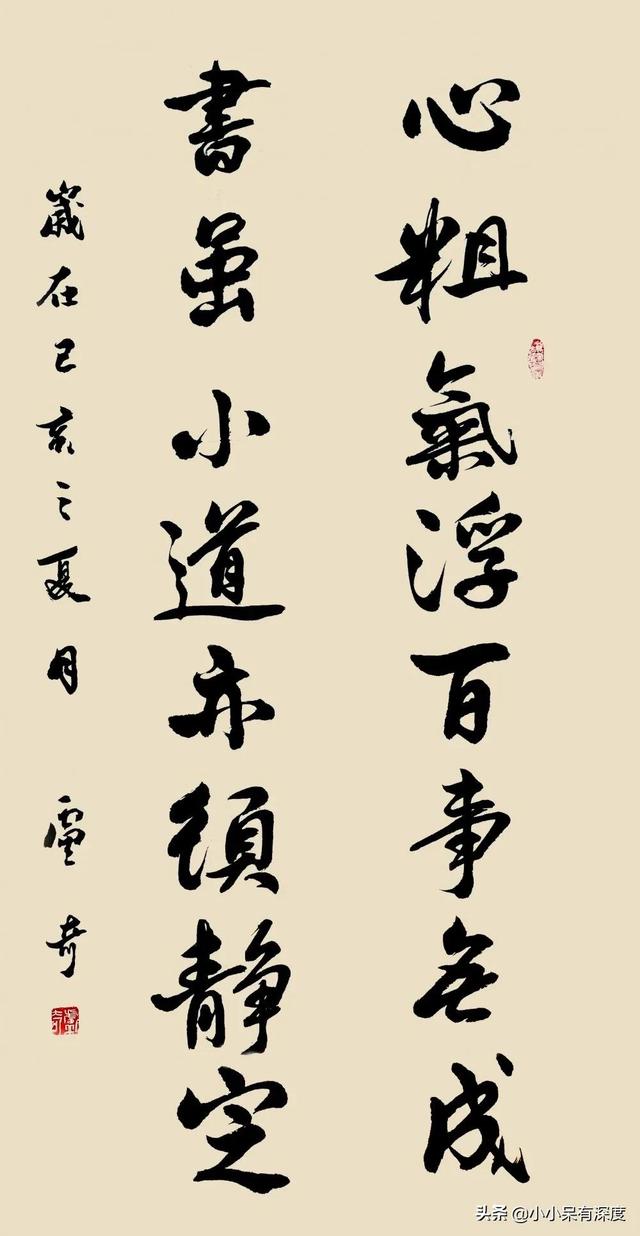 心粗氣浮百事無成
書虽小道亦須静定
歲在己亥之夏月 盧奇
头条 @小小呆有深度